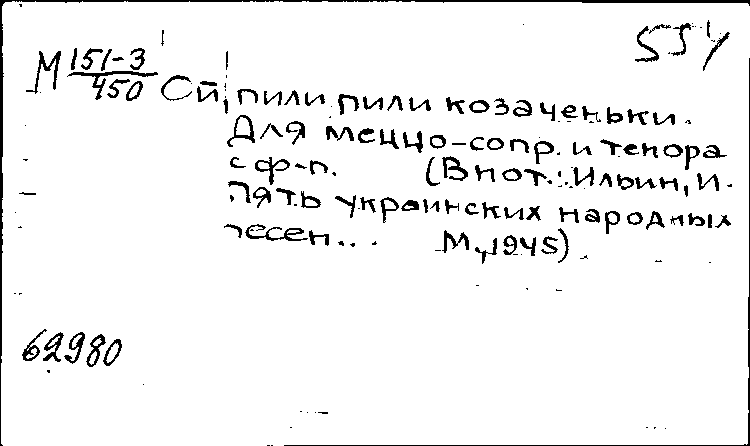 554
М 151-3
450
Ой, пили, пили козаченьки.
Для меццо-сопр. и тенора
с ф-п. (В нот.: Ильин, И.
Пять украинских народных
песен... М., 1945).
62980